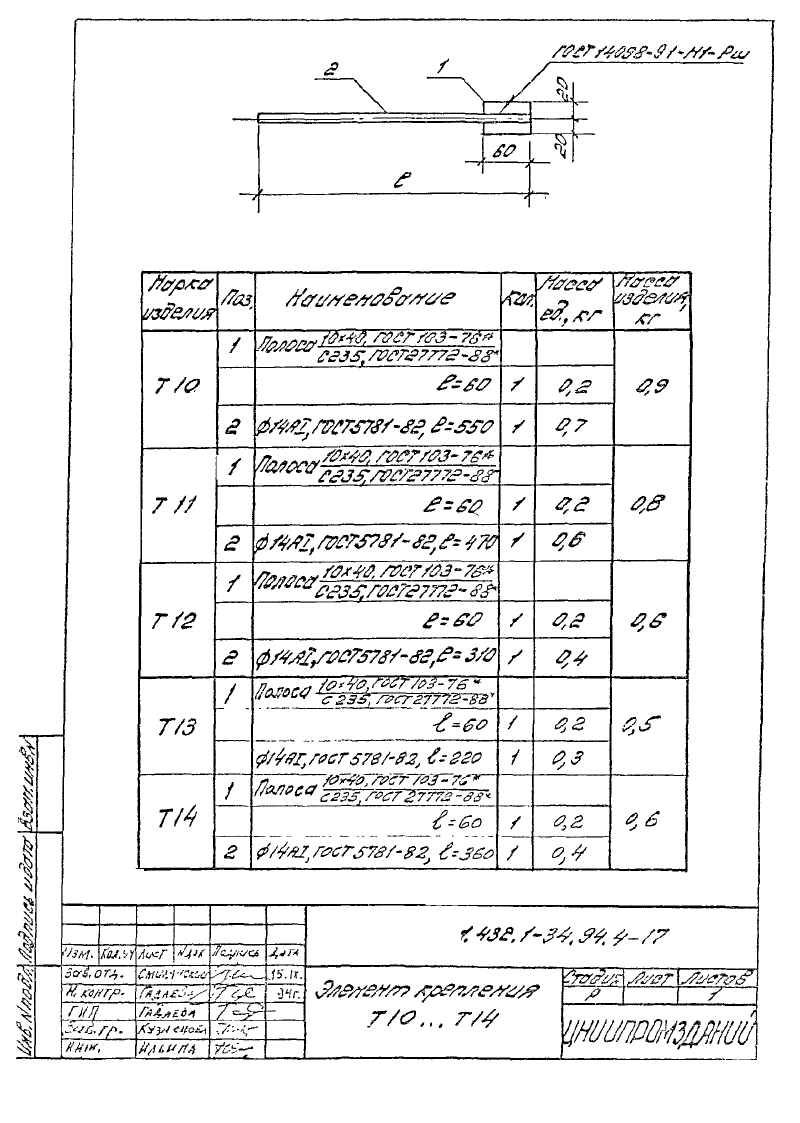 ГОСТ 14098-91-Н1-Рш
2
1
20
20
60
ℓ
Марка изделия Поз. Наименование Кол. Масса ед., кг Масса изделия, кг
Т10
1 Полоса 10×40, ГОСТ 103-76*
С235, ГОСТ 27772-88*
ℓ=60 1 0,2 0,9
2 ф14АI, ГОСТ 5781-82, ℓ=550 1 0,7
Т11
1 Полоса 10×40, ГОСТ 103-76*
С235, ГОСТ 27772-88*
ℓ=60 1 0,2 0,8
2 ф14АI, ГОСТ 5781-82, ℓ=470 1 0,6
Т12
1 Полоса 10×40, ГОСТ 103-76*
С235, ГОСТ 27772-88*
ℓ=60 1 0,2 0,6
2 ф14АI, ГОСТ 5781-82, ℓ=310 1 0,4
Т13
1 Полоса 10×40, ГОСТ 103-76*
С235, ГОСТ 27772-88*
ℓ=60 1 0,2 0,5
ф14АI, ГОСТ 5781-82, ℓ=220 1 0,3
Т14
1 Полоса 10×40, ГОСТ 103-76*
С235, ГОСТ 27772-88*
ℓ=60 1 0,2 0,6
2 ф14АI, ГОСТ 5781-82, ℓ=360 1 0,4
Взам. инв. N
Подпись и дата
Инв. N подл.
1.432.1-34.94.4-17
Изм. Кол.уч Лист Nдок Подпись Дата
Зав. отд. 15.IX.
Н. контр. Гадаева 94г.
ГИП Гадаева
Зав. гр. Кузнецова
Инж. Ильина
Элемент крепления
Т10...Т14
Стадия Лист Листов
Р 1
ЦНИИПРОМЗДАНИЙ